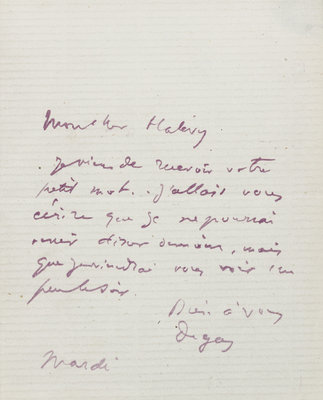 Mon cher Halévy
je viens de recevoir votre
petit mot. J'allais vous
écrire que je ne pourrai
venir dîner demain, mais
que je viendrai vous voir un
peu le soir.
Bien à vous
Degas
Mardi